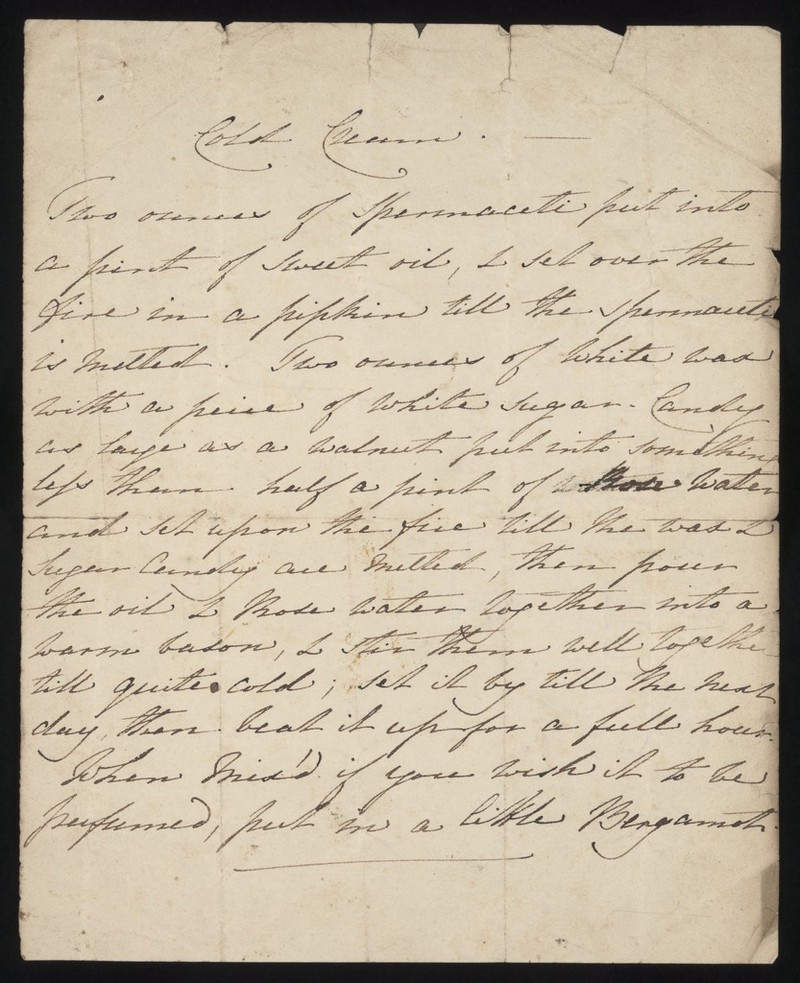 Cold Cream. —
Two ounces of Spermaceti put into
a pint of sweet oil, & set over the
fire in a pipkin till the spermaceti
is melted. Two ounces of White wax
with a peice of white sugar-Candy
as large as a walnut put into something
less than half a pint of Rose Water
and set upon the fire till the wax &
Sugar Candy are melted, then pour
the oil & Rose water together into a
warm bason, & stir them well togethe
till quite cold; set it by till the next
day, then beat it up for a full hour.
When Mix'd if you wish it to be
perfumed, put in a little Bergamot.